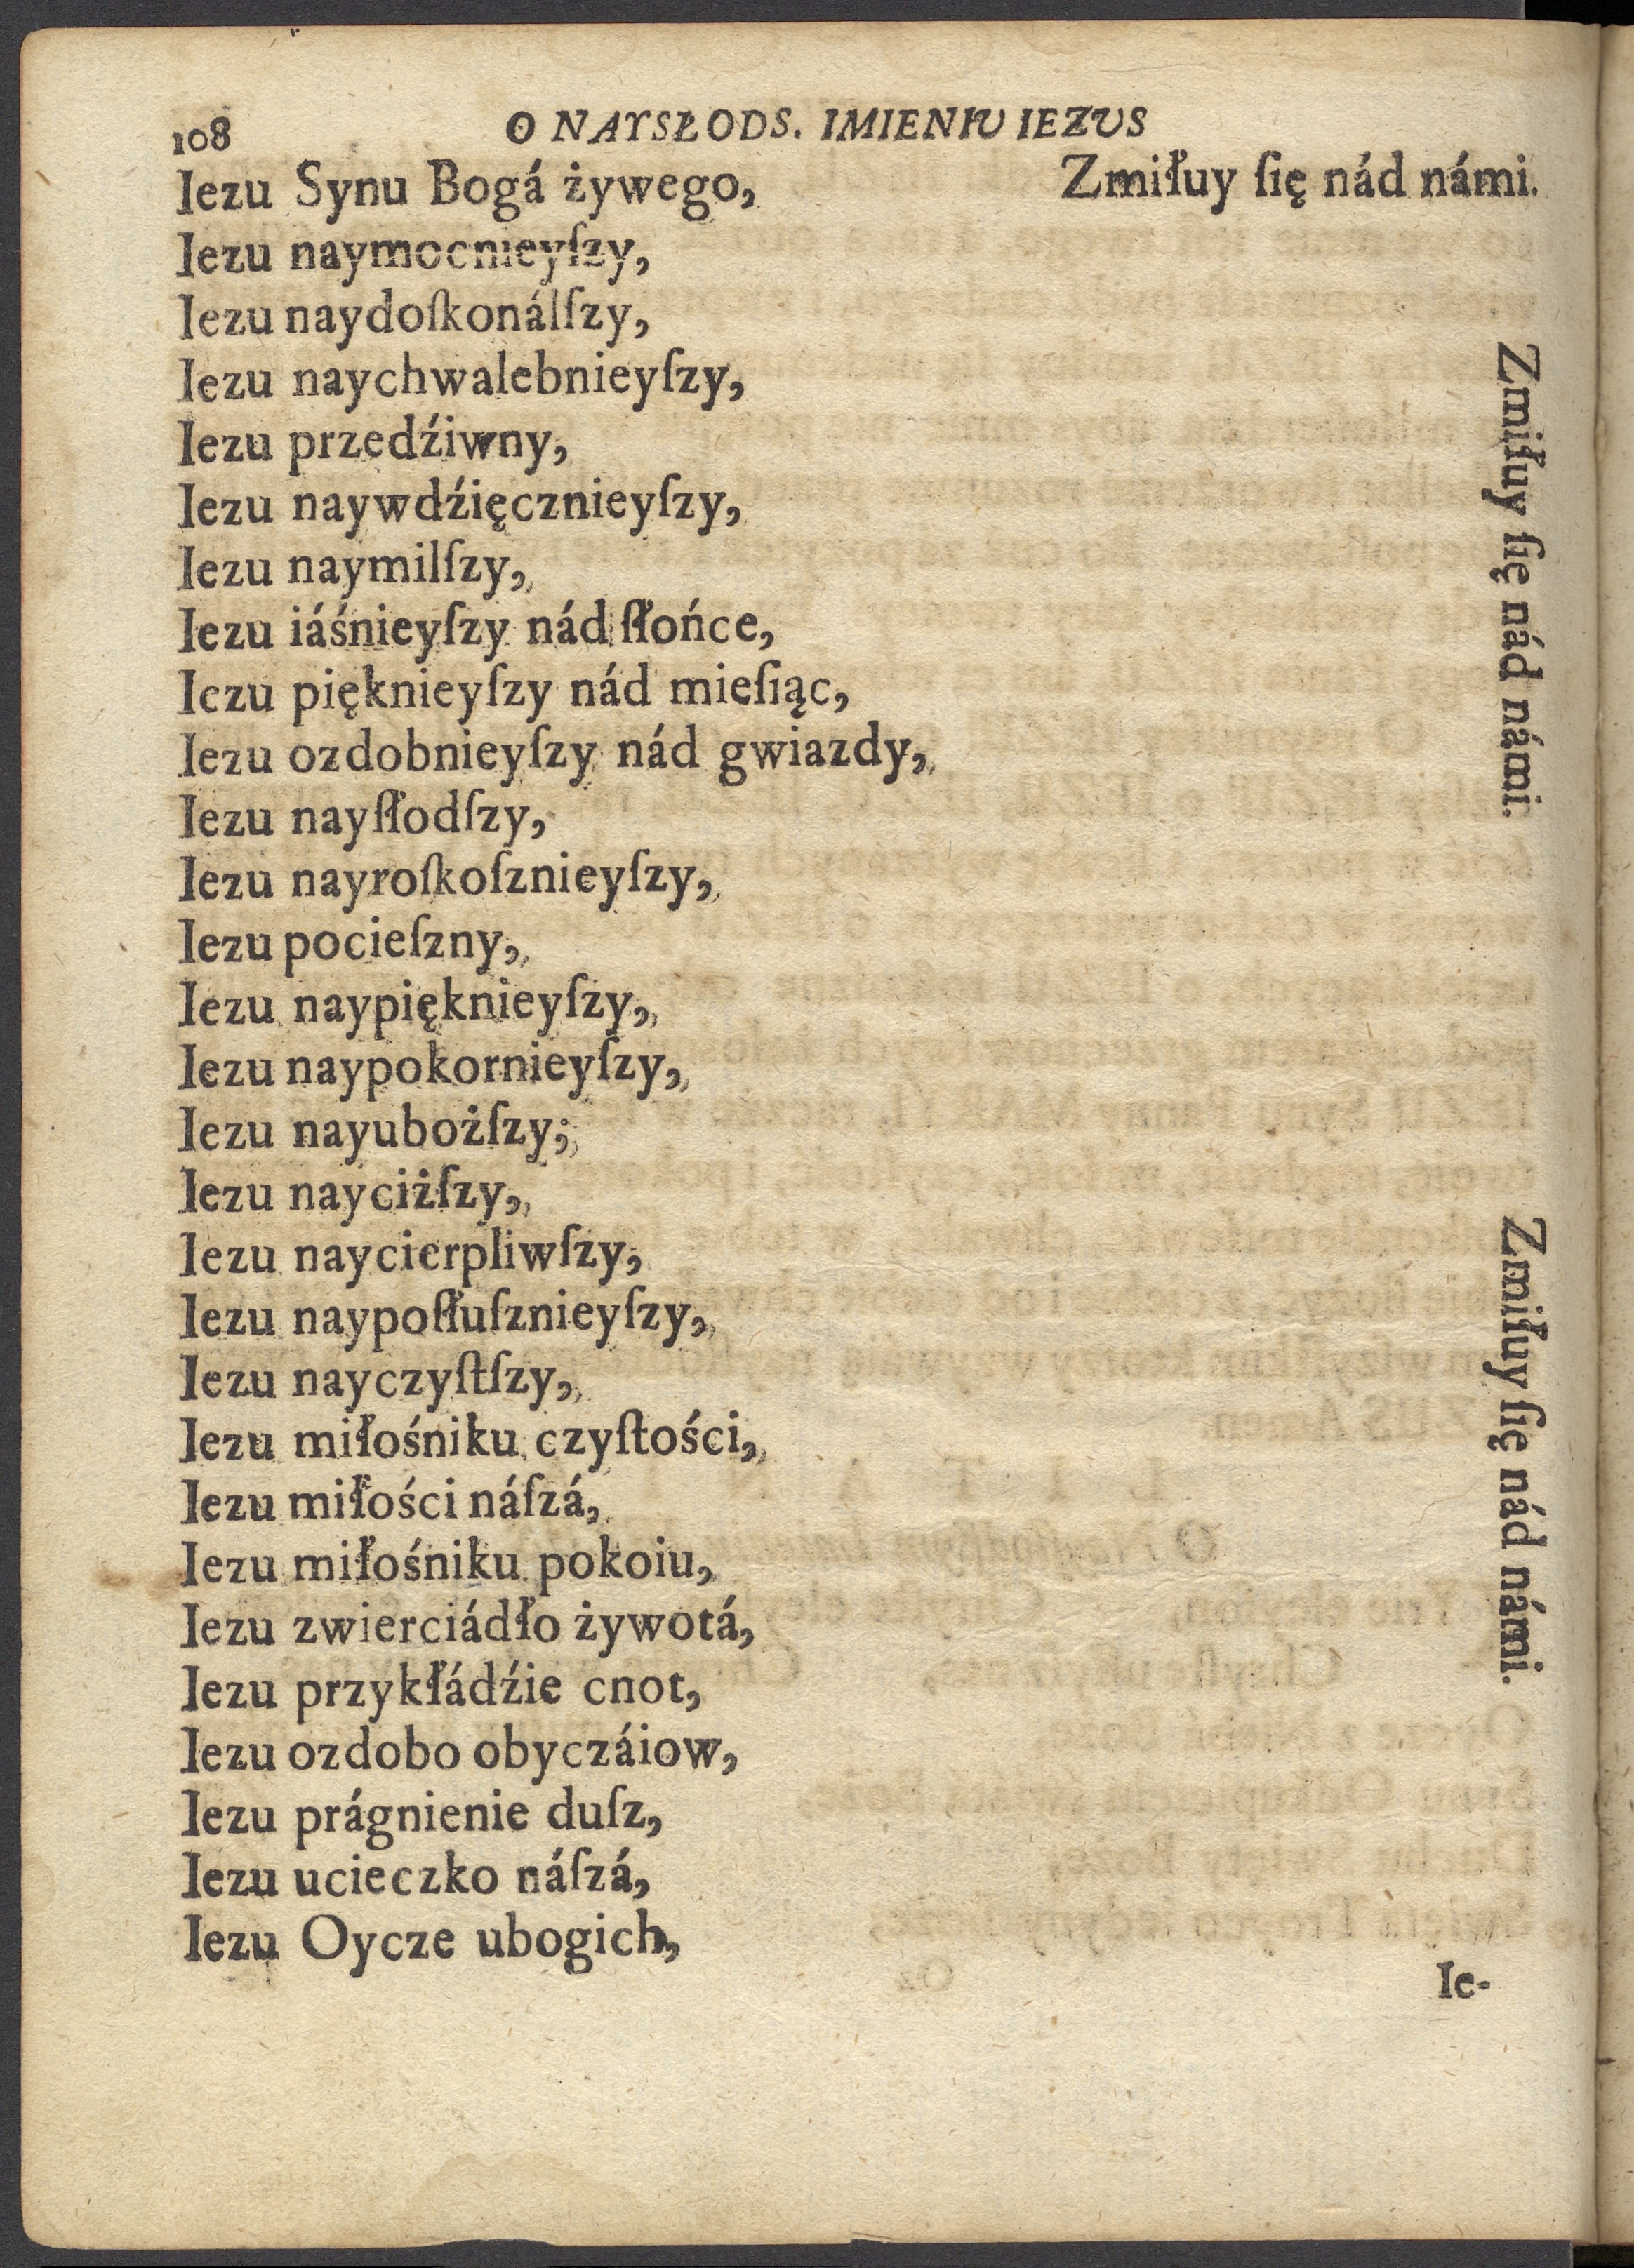 108 O NAYSŁODS. IMIENIU IEZUS
Iezu Synu Bogá żywego, Zmiłuy ſię nád námi.
Iezu naymocnieyſzy,
Iezu naydoſkonálſzy,
Iezu naychwalebnieyſzy,
Iezu przedźiwny,
Iezu naywdźięcznieyſzy,
Iezu naymilſzy,
Iezu iáśnieyſzy nád ſłońce,
Iezu pięknieyſzy nád mieſiąc,
Iezu ozdobnieyſzy nád gwiazdy,
Iezu nayſłodſzy,
Iezu nayroſkoſznieyſzy,
Iezu pocieſzny,
Iezu naypięknieyſzy,
Iezu naypokornieyſzy,
Iezu nayubożſzy,
Iezu nayciżſzy,
Iezu naycierpliwſzy,
Iezu naypoſłuſznieyſzy,
Iezu nayczyſtſzy,
Iezu miłośniku czyſtości,
Iezu miłości náſzá,
Iezu miłośniku pokoiu,
Iezu zwierciádło żywotá,
Iezu przykłádźie cnot,
Iezu ozdobo obyczáiow,
Iezu prágnienie duſz,
Iezu ucieczko náſzá,
Iezu Oycze ubogich,
Zmiłuy ſię nád námi.
Zmiłuy ſię nád námi.
Ie-